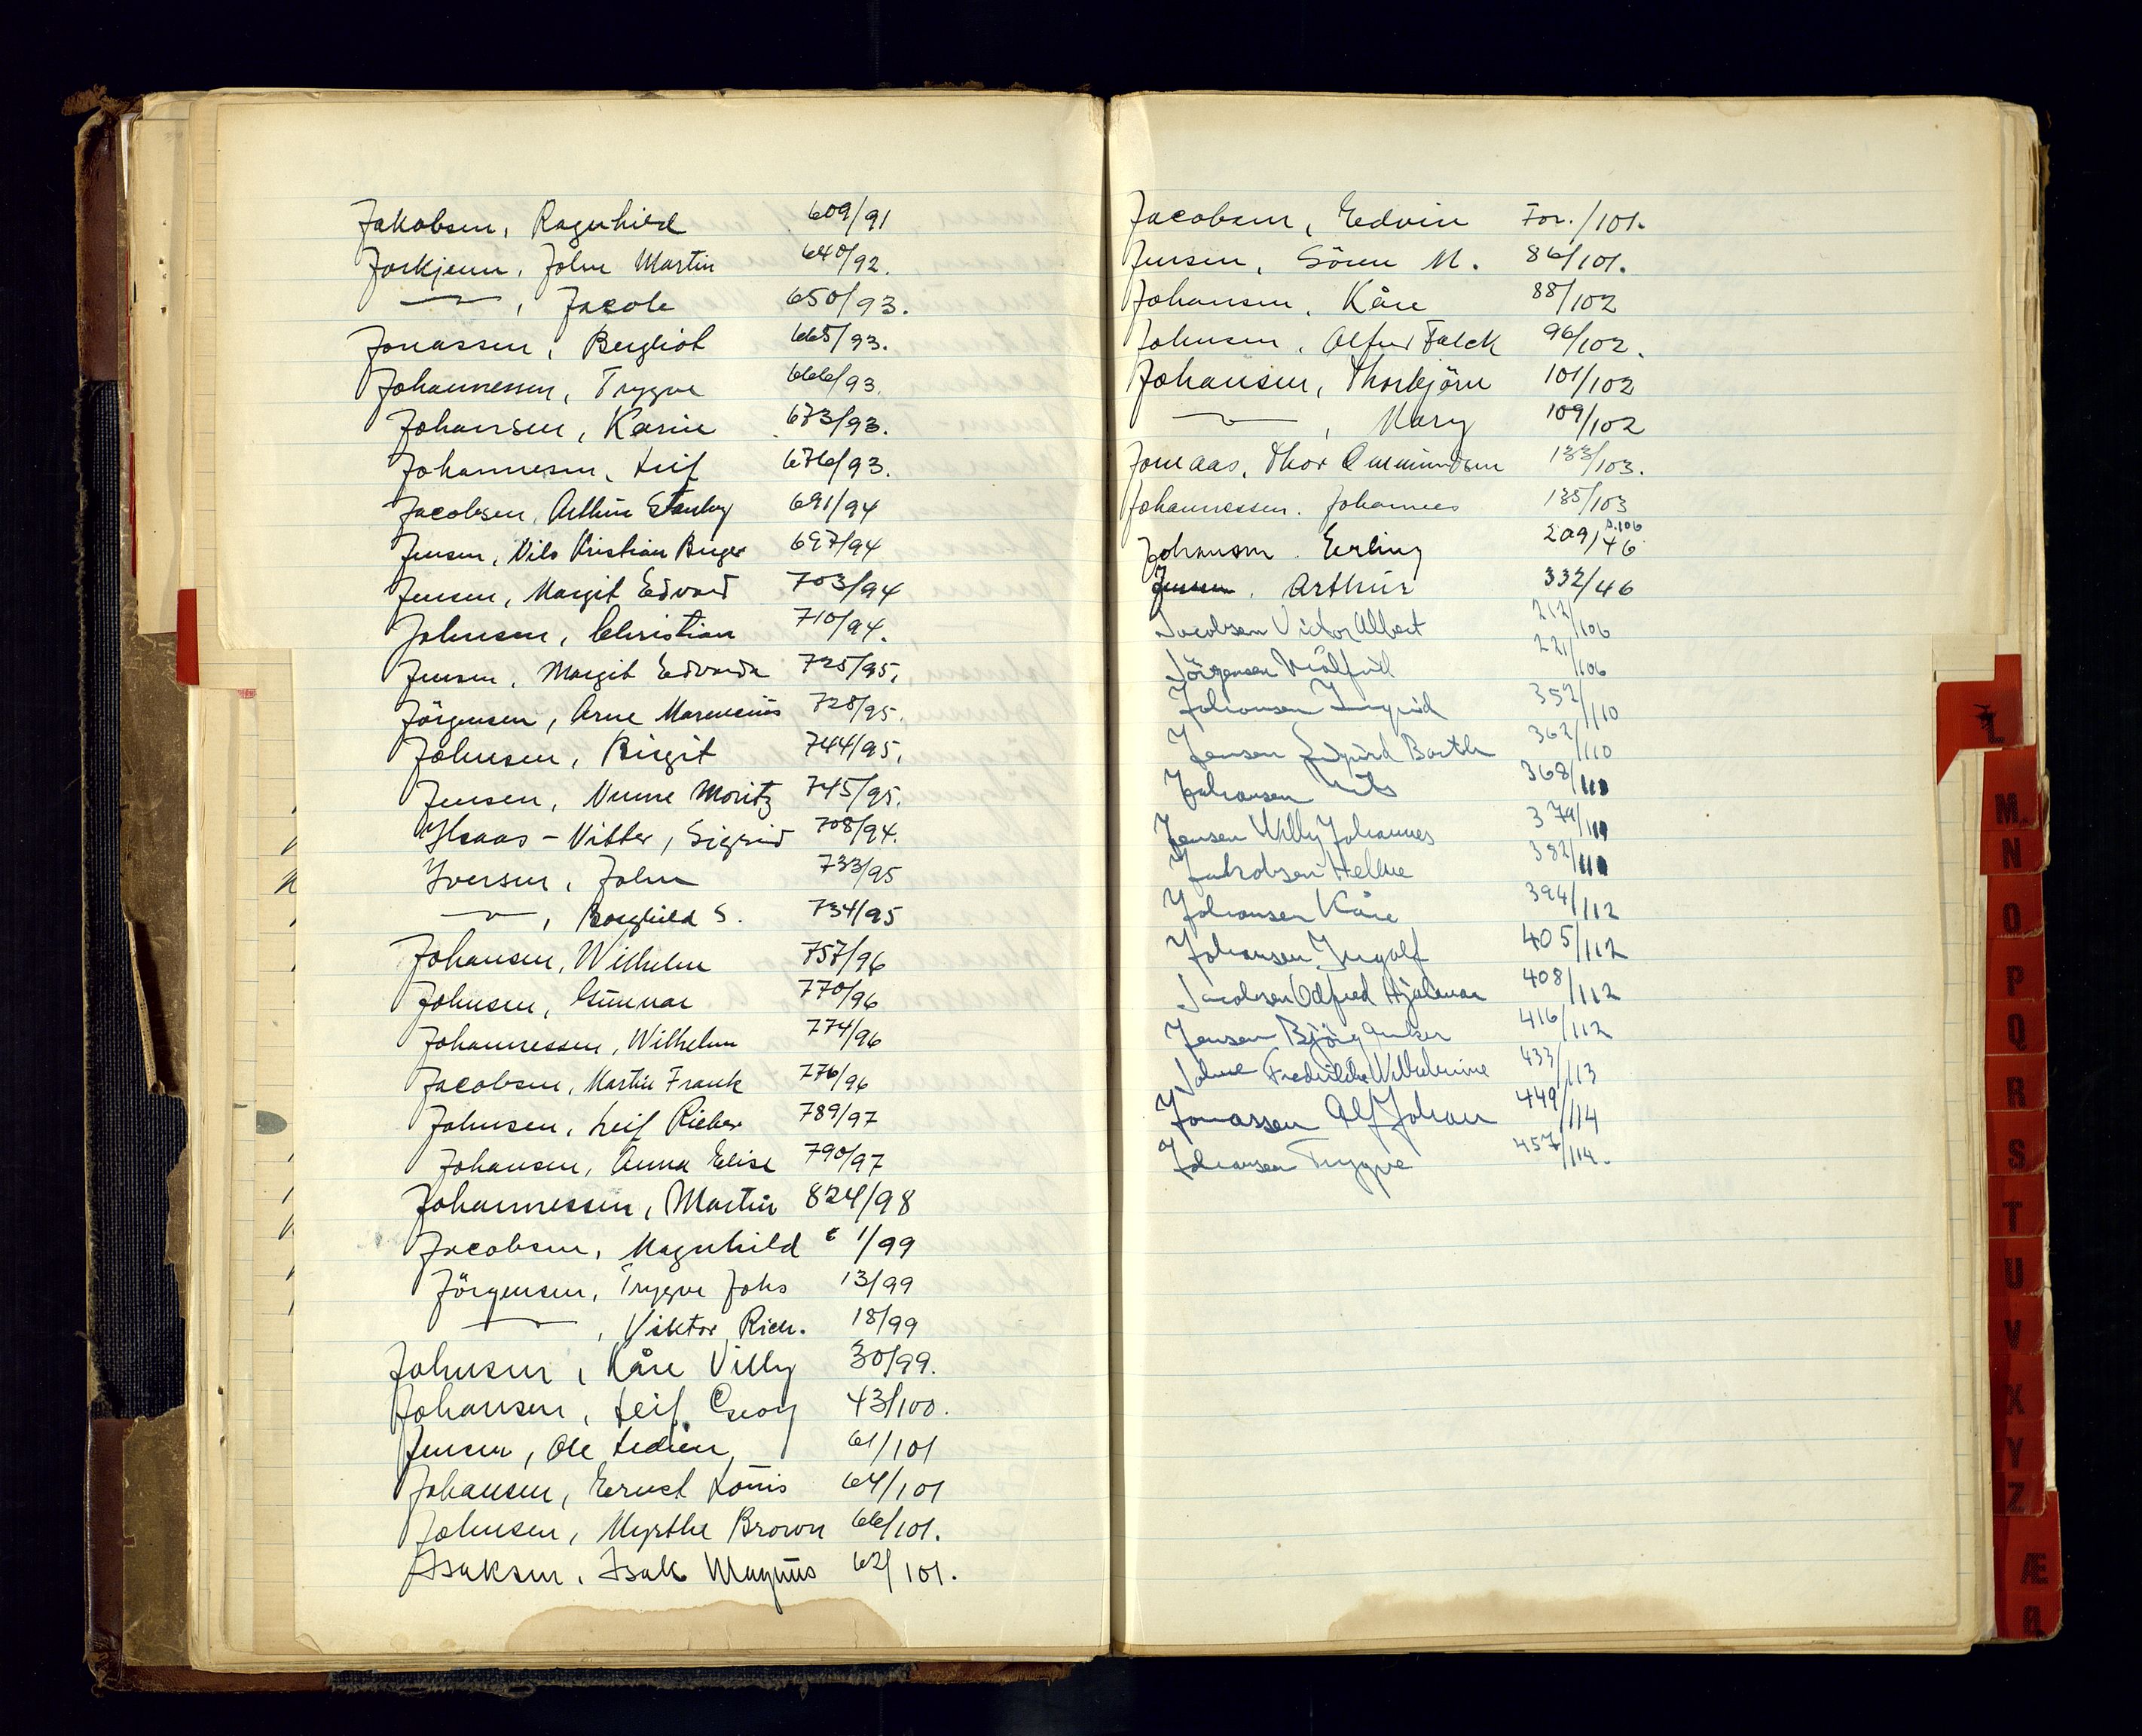 Jakobsen, Ragnhild 609/91
Jorkjenn, John Martin 640/92.
— , Jacob 650/93.
Jonassen, Bergliot 665/93.
Johannessen, Trygve 666/93.
Johansen, Karin 673/93.
Johannesen, Leif 676/93.
Jacobsen, Arthur Stanley 691/94
Jensen, Nils Kristian Birger 697/94
Jensen, Margit Edvard 703/94
Johnsen, Christian 710/94.
Jensen, Margit Edvarda 725/95.
Jörgensen, Arne Marensius 728/95.
Johnsen, Birgit 744/95.
Jensen, Nunne Moritz 745/95.
-Vibber, Sigrid 708/94.
Iversen, John 733/95
— , Borghild S. 734/95
Johansen, Wilhelm 757/96
Johnsen, Gunnar 770/96
Johannessen, Wilhelm 774/96
Jacobsen, Martin Frank 776/96
Johnsen, Leif Rieber 789/97
Johansen, Anna Elise 790/97
Johannessen, Martin 824/98
Jacobsen, Magnhild 1/99
Jörgensen, Trygve Johs 13/99
— , Viktor Rich. 18/99
Johnsen, Kåre Villy 30/99.
Johansen, Leif Georg 43/100.
Jensen, Ole 61/101
Johansen, Ernst Louis 64/101
Johnsen, Myrthe Brown 66/101.
Isaksen, Isak Magnus 62/101.
Jacobsen, Edvin For./101.
Jensen, Sören M. 86/101.
Johansen, Kåre 88/102
Johnsen, Alfred Falck 96/102.
Johansen, Thorbjörn 101/102
— , Mary 109/102
Jomaas, Thor Ommundsen 133/103.
Johannessen. Johannes 135/103
Johansen. Erling 209/46 s.106
Jensen, Arthur 332/46
Jacobsen Victor Albert 212/106
Jörgensen Målfrid 221/106
Johansen Ingrid 352/110
Jensen Sigurd Barth 362/110
Johansen Nils 368/110
Jensen Willy Johannes 379/110
Jakobsen Helene 382/110
Johansen Kåre 394/112
Johansen Ingolf 405/112
Jacobsen Odfred Hjalmar 408/112
Jensen Björg 416/112
Fredrikke Wilhelmine 433/113
Jonassen Alf Johan 449/114
Johansen Trygve 457/114.
L
M
N
O
P
Q
R
S
T
U
V
X
Y
Z
Æ
Ø